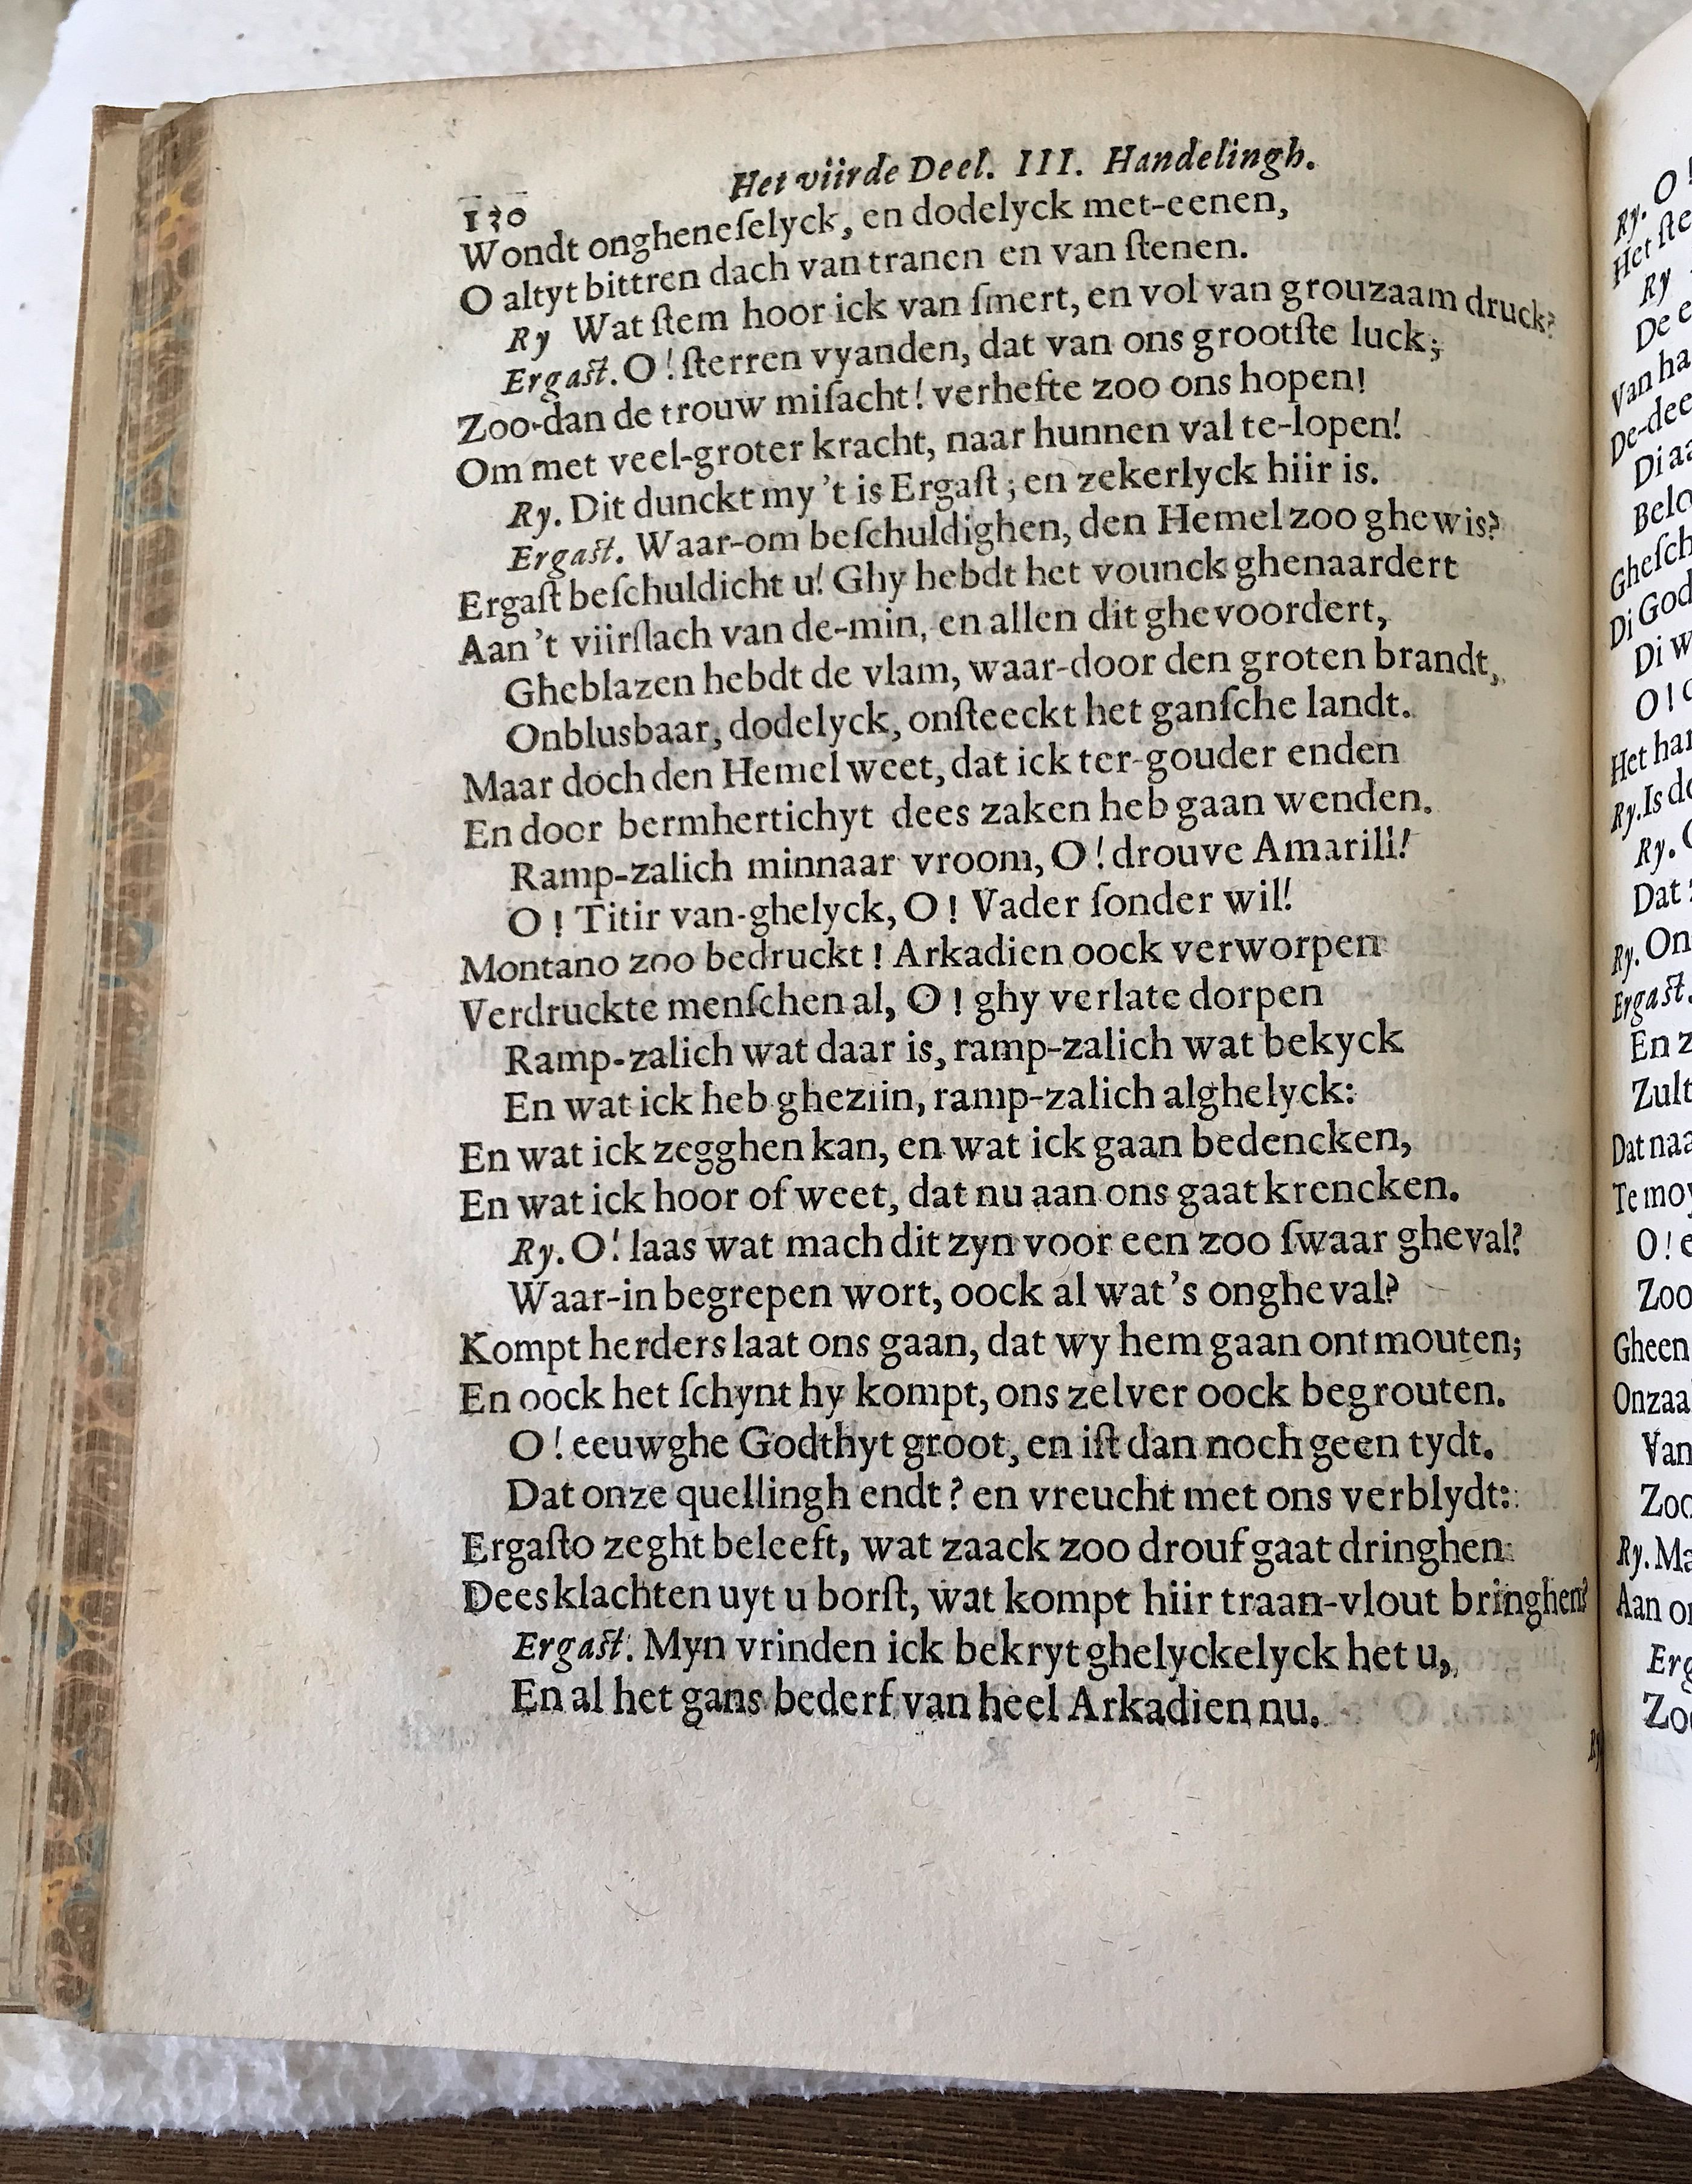 Het viirde Deel. III. Handelingh.
130
Wondt ongheneſelyck, en dodelyck met-eenen,
O altyt bittren dach van tranen en van ſtenen.
Ry Wat ſtem hoor ick van ſmert, en vol van grouzaam druck?
Ergaſt. O! ſterren vyanden, dat van ons grootſte luck;
Zoo-dan de trouw miſacht! verhefte zoo ons hopen!
Om met veel-groter kracht, naar hunnen val te-lopen!
Ry. Dit dunckt my 't is Ergaſt; en zekerlyck hiir is.
Ergaſt. Waar-om beſchuldighen, den Hemel zoo ghewis?
Ergaſt beſchuldicht u! Ghy hebdt het vounck ghenaardert
Aan 't viirſlach van de-min, en allen dit ghevoordert,
Gheblazen hebdt de vlam, waar-door den groten brandt,
Onblusbaar, dodelyck, onſteeckt het ganſche landt.
Maar doch den Hemel weet, dat ick ter-gouder enden
En door bermhertichyt dees zaken heb gaan wenden.
Ramp-zalich minnaar vroom, O! drouve Amarill!
O! Titir van-ghelyck, O! Vader ſonder wil!
Montano zoo bedruckt! Arkadien oock verworpen
Verdruckte menſchen al, O! ghy verlate dorpen
Ramp-zalich wat daar is, ramp-zalich wat bekyck
En wat ick heb gheziin, ramp-zalich alghelyck:
En wat ick zegghen kan, en wat ick gaan bedencken,
En wat ick hoor of weet, dat nu aan ons gaat krencken.
Ry. O! laas wat mach dit zyn voor een zoo ſwaar gheval?
Waar-in begrepen wort, oock al wat's ongheval?
Kompt herders laat ons gaan, dat wy hem gaan ontmouten;
En oock het ſchynt hy kompt, ons zelver oock begrouten.
O! eeuwghe Godthyt groot, en iſt dan noch geen tydt.
Dat onze quellingh endt? en vreucht met ons verblydt:
Ergaſto zeght beleeft, wat zaack zoo drouf gaat dringhen
Dees klachten uyt u borſt, wat kompt hiir traan-vlout bringhen?
Ergaſt. Myn vrinden ick bekryt ghelyckelyck het u,
En al het gans bederf van heel Arkadien nu.